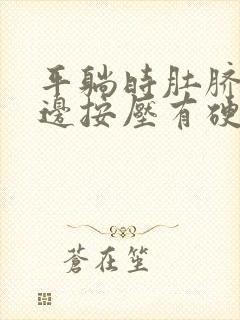 平躺时肚脐
邊按壓有硬
蒼在笙